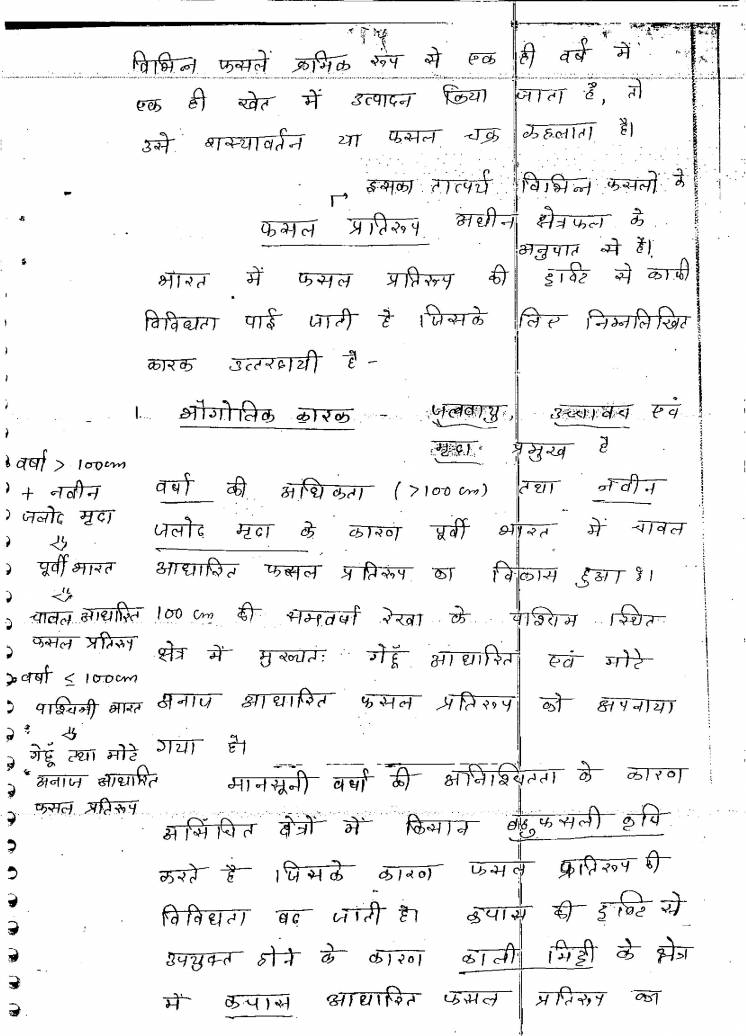 विभिन्न फसलें क्रमिक रूप से एक ही वर्ष में
एक ही खेत में उत्पादन किया जाता है, तो
उसे शस्यावर्तन या फसल चक्र कहलाता है।
इसका तात्पर्य विभिन्न फसलों के
फसल प्रतिरूप अधीन क्षेत्रफल के
अनुपात से है।
भारत में फसल प्रतिरूप की दृष्टि से काफी
विविधता पाई जाती है । जिसके लिए निम्नलिखित
कारक उत्तरदायी है -
1. भौगोलिक कारक - जलवायु, उच्चावच एवं
मृदा प्रमुख है
वर्षा की अधिकता (>100 cm) तथा नवीन
जलोढ मृदा के कारण पूर्वी भारत में चावल
आधारित फसल प्रतिरूप का विकास हुआ है।
100 cm की समवर्षा रेखा के पश्चिम स्थित
क्षेत्र में मुख्यतः गेहूँ आधारित एवं मोटे
अनाज आधारित फसल प्रतिरूप को अपनाया
गया है।
मानसूनी वर्षा की अनिश्चितता के कारण
असिंचित क्षेत्रों में किसान बहुफसली कृषि
करते है । जिसके कारण फसल प्रतिरूप की
विविधता बढ जाती है। कपास की दृष्टि से
उपयुक्त होने के कारण काली मिट्टी के क्षेत्र
में कपास आधारित फसल प्रतिरूप का
वर्षा > 100cm
+ नवीन
जलोढ मृदा
⇓
पूर्वी भारत
⇓
चावल आधारित
फसल प्रतिरूप
वर्षा ≤ 100cm
पश्चिमी भारत
⇓
गेहूँ तथा मोटे
अनाज आधारित
फसल प्रतिरूप